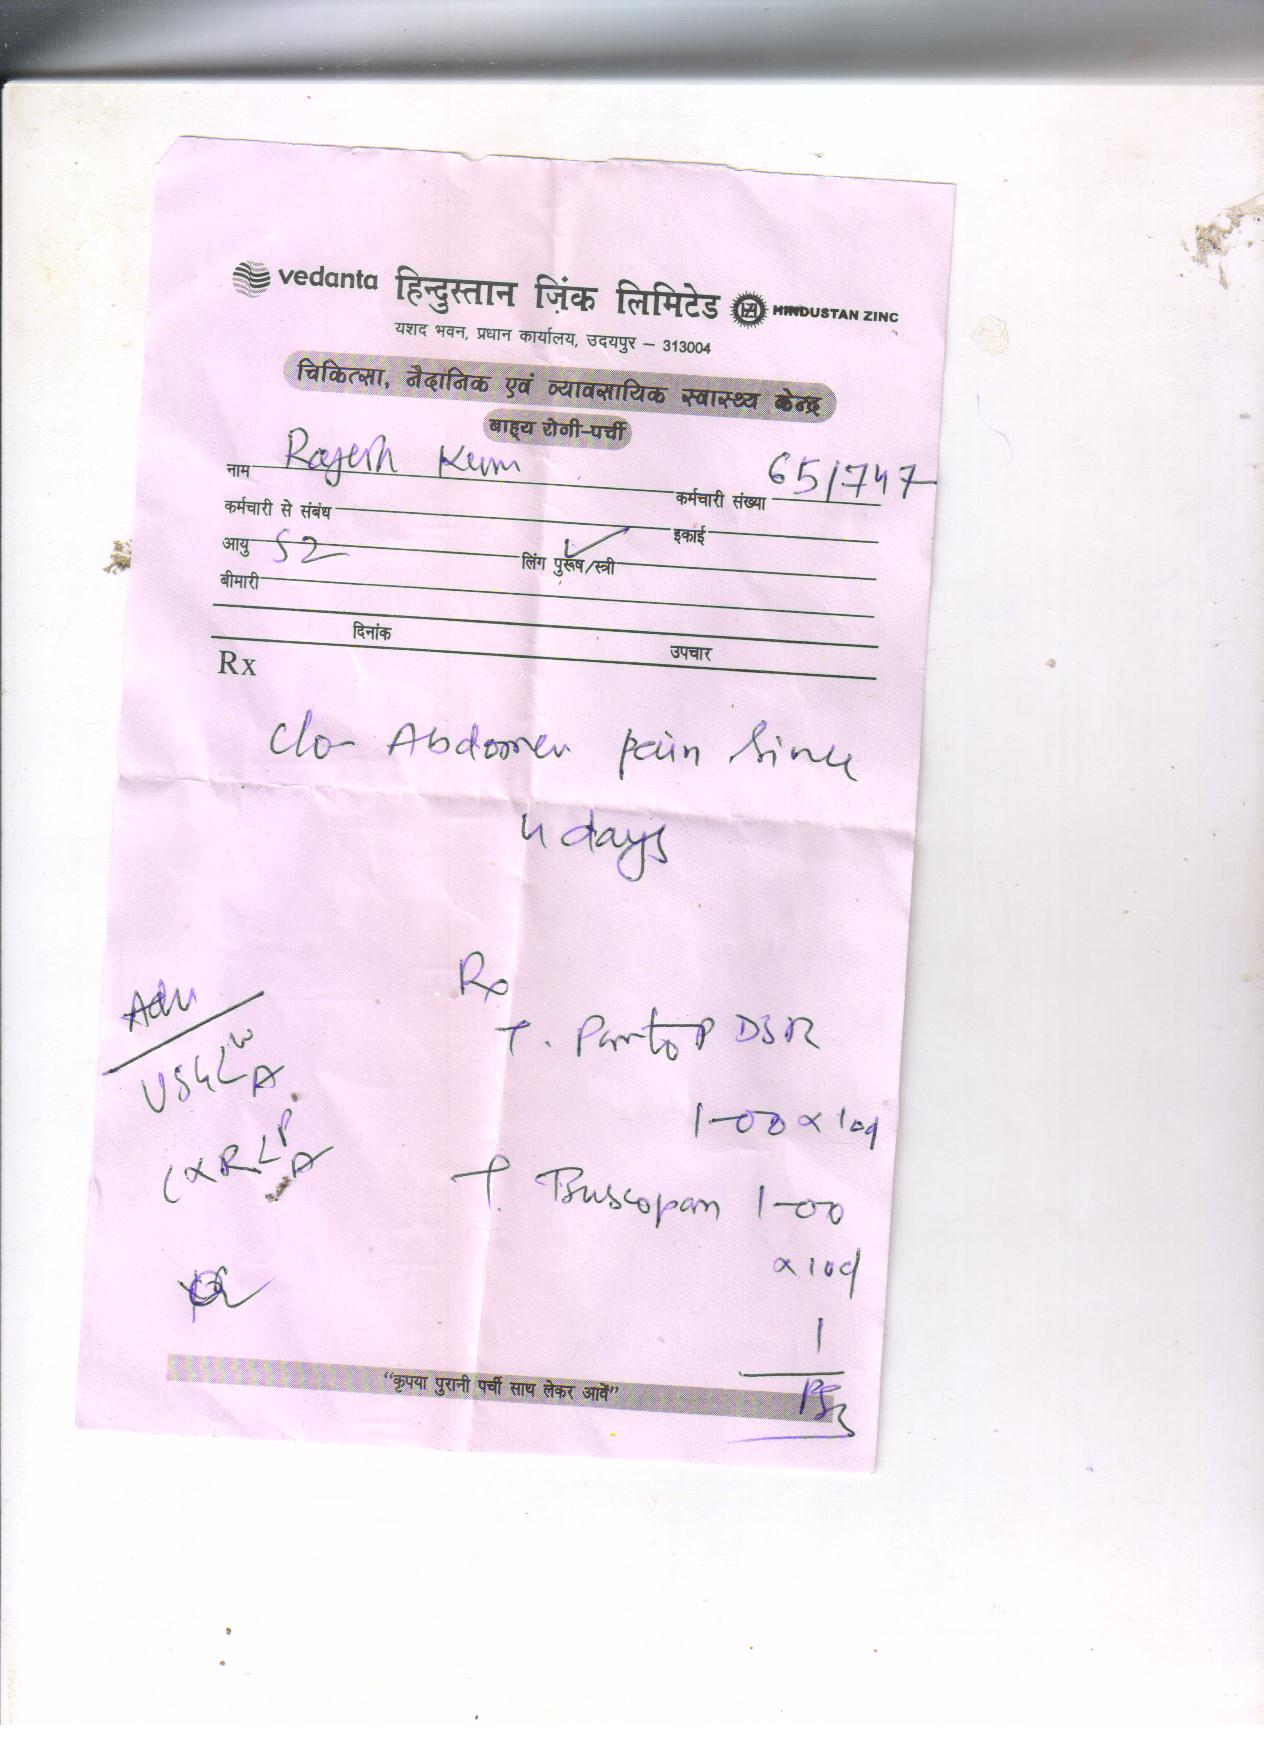 vedanta हिन्दुस्तान ज़िंक लिमिटेड HINDUSTAN ZINC
यशद भवन, प्रधान कार्यालय, उदयपुर – 313004
चिकित्सा, नैदानिक एवं व्यावसायिक स्वास्थ्य केन्द्र
बाह्य रोगी-पर्ची
नाम Rajesh Kum कर्मचारी संख्या 65/747
कर्मचारी से संबंध इकाई
आयु 52 लिंग पुरूष/स्त्री
बीमारी
दिनांक उपचार
Rx
c/o- Abdomen pain since
4 days
Adv
USG W A
CXR P A
Rx
T. Pantop DSR
1-00 x 10d
T. Buscopan 1-00
x 10d
1
"कृपया पुरानी पर्ची साथ लेकर आवें"